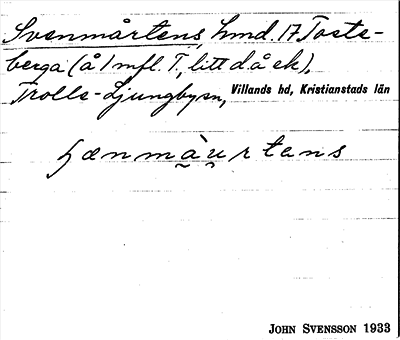 Svenmårtens, hmd. 17 Toste-
berga (å 1 mfl. T., litt d.å ek),
Trolle-Ljungby sn, Villands hd, Kristianstads län
JOHN SVENSSON 1933